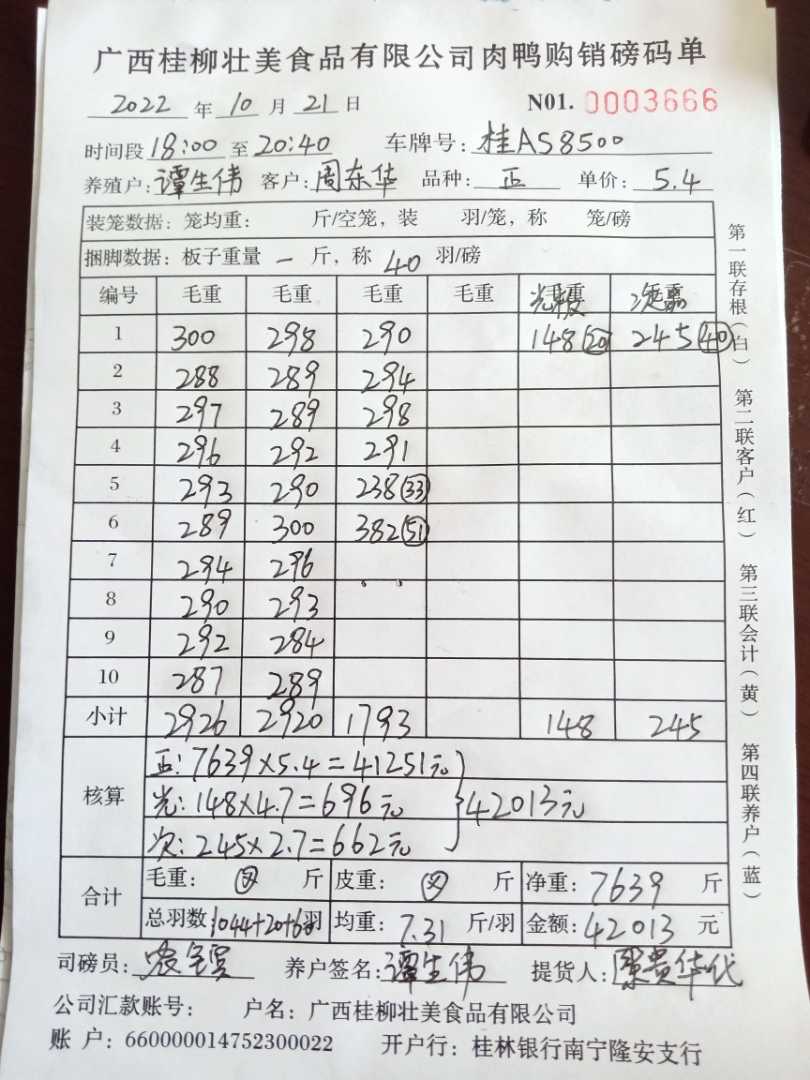 广西桂柳壮美食品有限公司肉鸭购销磅码单
2022 年 10 月 21 日 N01. 0003666
时间段 18:00 至 20:40 车牌号: 桂AS8500
养殖户: 谭生伟 客户: 周东华 品种: 正 单价: 5.4
装笼数据: 笼均重: 斤/空笼, 装 羽/笼, 称 笼/磅
捆脚数据: 板子重量 一 斤, 称 40 羽/磅
编号 毛重 毛重 毛重 毛重
1 300 298 290 148 (20) 245 (40)
2 288 289 294
3 297 289 298
4 296 292 291
5 293 290 238 (33)
6 289 300 382 (51)
7 294 296
8 290 293
9 292 284
10 287 289
小计 2926 2920 1793 148 245
核算
正: 7639×5.4=41251元
光: 148×4.7=696元 } 42013元
次: 245×2.7=662元
合计
毛重: 斤 皮重: 斤 净重: 7639 斤
总羽数 1044+20+ 羽 均重: 7.31 斤/羽 金额: 42013 元
司磅员: 养户签名: 谭生伟 提货人:
公司汇款账号: 户名: 广西桂柳壮美食品有限公司
账 户: 660000014752300022 开户行: 桂林银行南宁隆安支行
第一联存根(白)
第二联客户(红)
第三联会计(黄)
第四联养户(蓝)